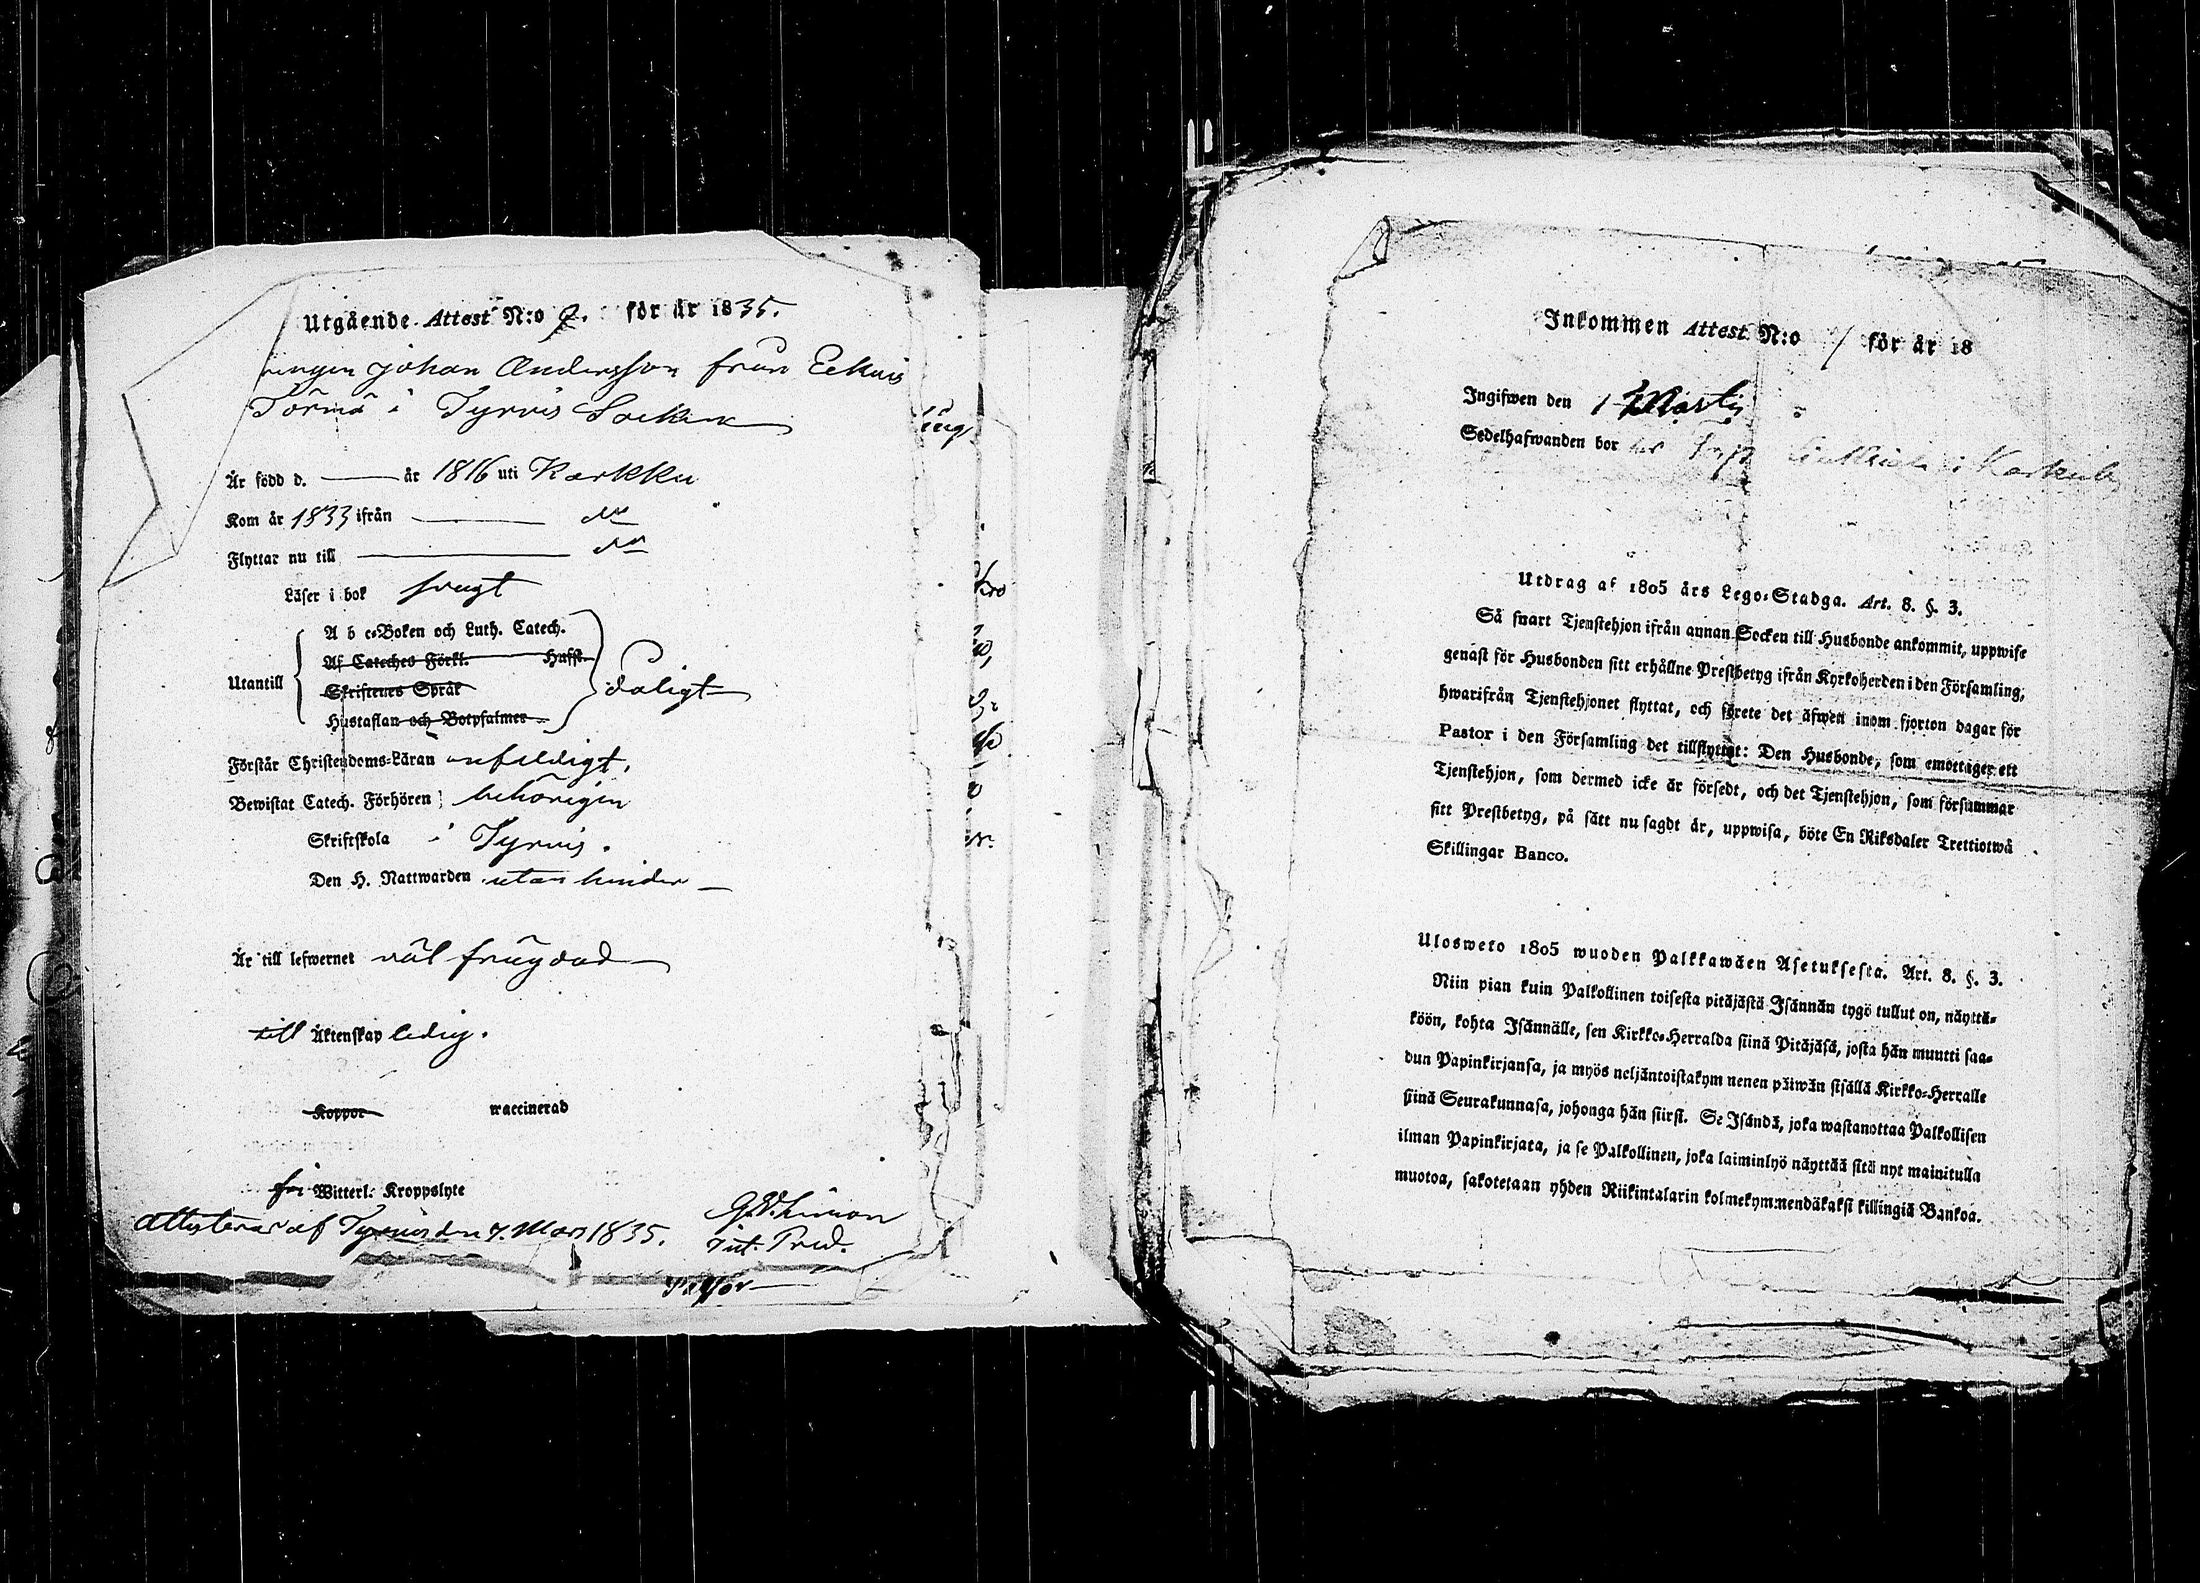 Utgående Attest N:o 9. för år 1835.
Johan Andersson från Eekuis
Törmä i Tyrvis Socken
Är född d. år 1816 uti Karkku
Kom år 1833 ifrån
Flyttar nu till
Läser i bok svagt
A b c-Boken och Luth. Catech.
Af Cateches Förkl. Hufst.
Utantill
Skriftenes Språk
daligt
Hustaflan och Botpsalmer
Förstår Christendoms-Läran enfeldigt.
Bewistat Catech. Förhören behörigen
Skriftskola i Tyrvis.
Den H. Nattwarden utan hinder
Är till lefwernet väl frägdad
till Äktenskap ledig.
Koppor waccinerad
för Witterl: Kroppslyte
Attesterar af Tyrvis den 7. Mars 1835.
Pastor
Inkommen Attest N:o för år 18
Ingifwen den Martii
Sedelhafwanden bor
Utdrag af 1805 års Lego-Stadga. Art. 8. §. 3.
Så snart Tjenstehjon ifrån annan Socken till Husbonde ankommit, uppwise
genast för Husbonden sitt erhållne Prestbetyg ifrån Kyrkoherden i den Församling,
hwarifrån Tjenstehjonet flyttat, och förete det äfwen inom fjorton dagar för
Pastor i den Församling det tillflyttat: Den Husbonde, som emottager ett
Tjenstehjon, som dermed icke är försedt, och det Tjenstehjon, som försummar
sitt Prestbetyg, på sätt nu sagdt är, uppwisa, böte En Riksdaler Trettiotwå
Skillingar Banco.
Ulosweto 1805 wuoden Palkkawäen Asetuksesta. Art. 8. §. 3.
Niin pian kuin Palkollinen toisesta pitäjästä Isännän tygö tullut on, näyttä-
köön, kohta Isännälle, sen Kirkko-Herralda siinä Pitäjäsä, josta hän muutti saa-
dun Papinkirjansa, ja myös neljäntoistakymmenen päiwän sisällä Kirkko-Herralle
siinä Seurakunnasa, johonga hän siirsi. Se Isändä, joka wastanottaa Palkollisen
ilman Papinkirjata, ja se Palkollinen, joka laiminlyö näyttää sitä nyt mainitulla
muotoa, sakotetaan yhden Riikintalarin kolmekymmendäkaksi killingiä Bankoa.